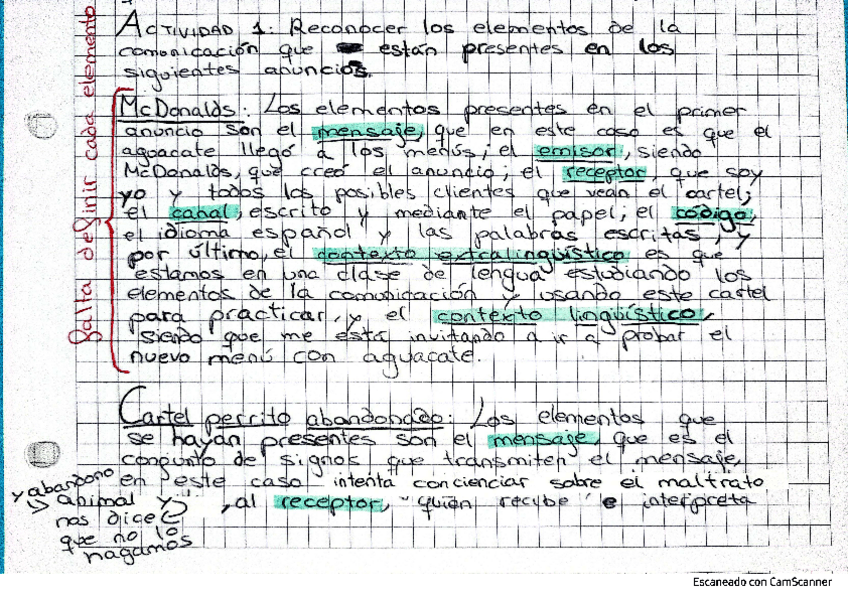 ACTIVIDAD 1: Reconocer los elementos de la
comunicación que están presentes en los
siguientes anuncios.
falta definir cada elemento
McDonalds: Los elementos presentes en el primer
anuncio son el mensaje, que en este caso es que el
aguacate llegó a los menús; el emisor, siendo
McDonalds, que creó el anuncio; el receptor, que soy
yo y todos los posibles clientes que vean el cartel;
el canal, escrito y mediante el papel; el código,
el idioma español y las palabras escritas, y
por último, el contexto extralingüístico es que
estamos en una clase de lengua estudiando los
elementos de la comunicación y usando este cartel
para practicar, y el contexto lingüístico,
siendo que me está invitando a ir a probar el
nuevo menú con aguacate.
Cartel perrito abandonado: Los elementos que
se hayan presentes son el mensaje, que es el
conjunto de signos que transmiten el mensaje,
en este caso intenta concienciar sobre el maltrato
y abandono
animal y , al receptor, quién recibe e interpreta
nos dice
que no lo
hagamos
Escaneado con CamScanner